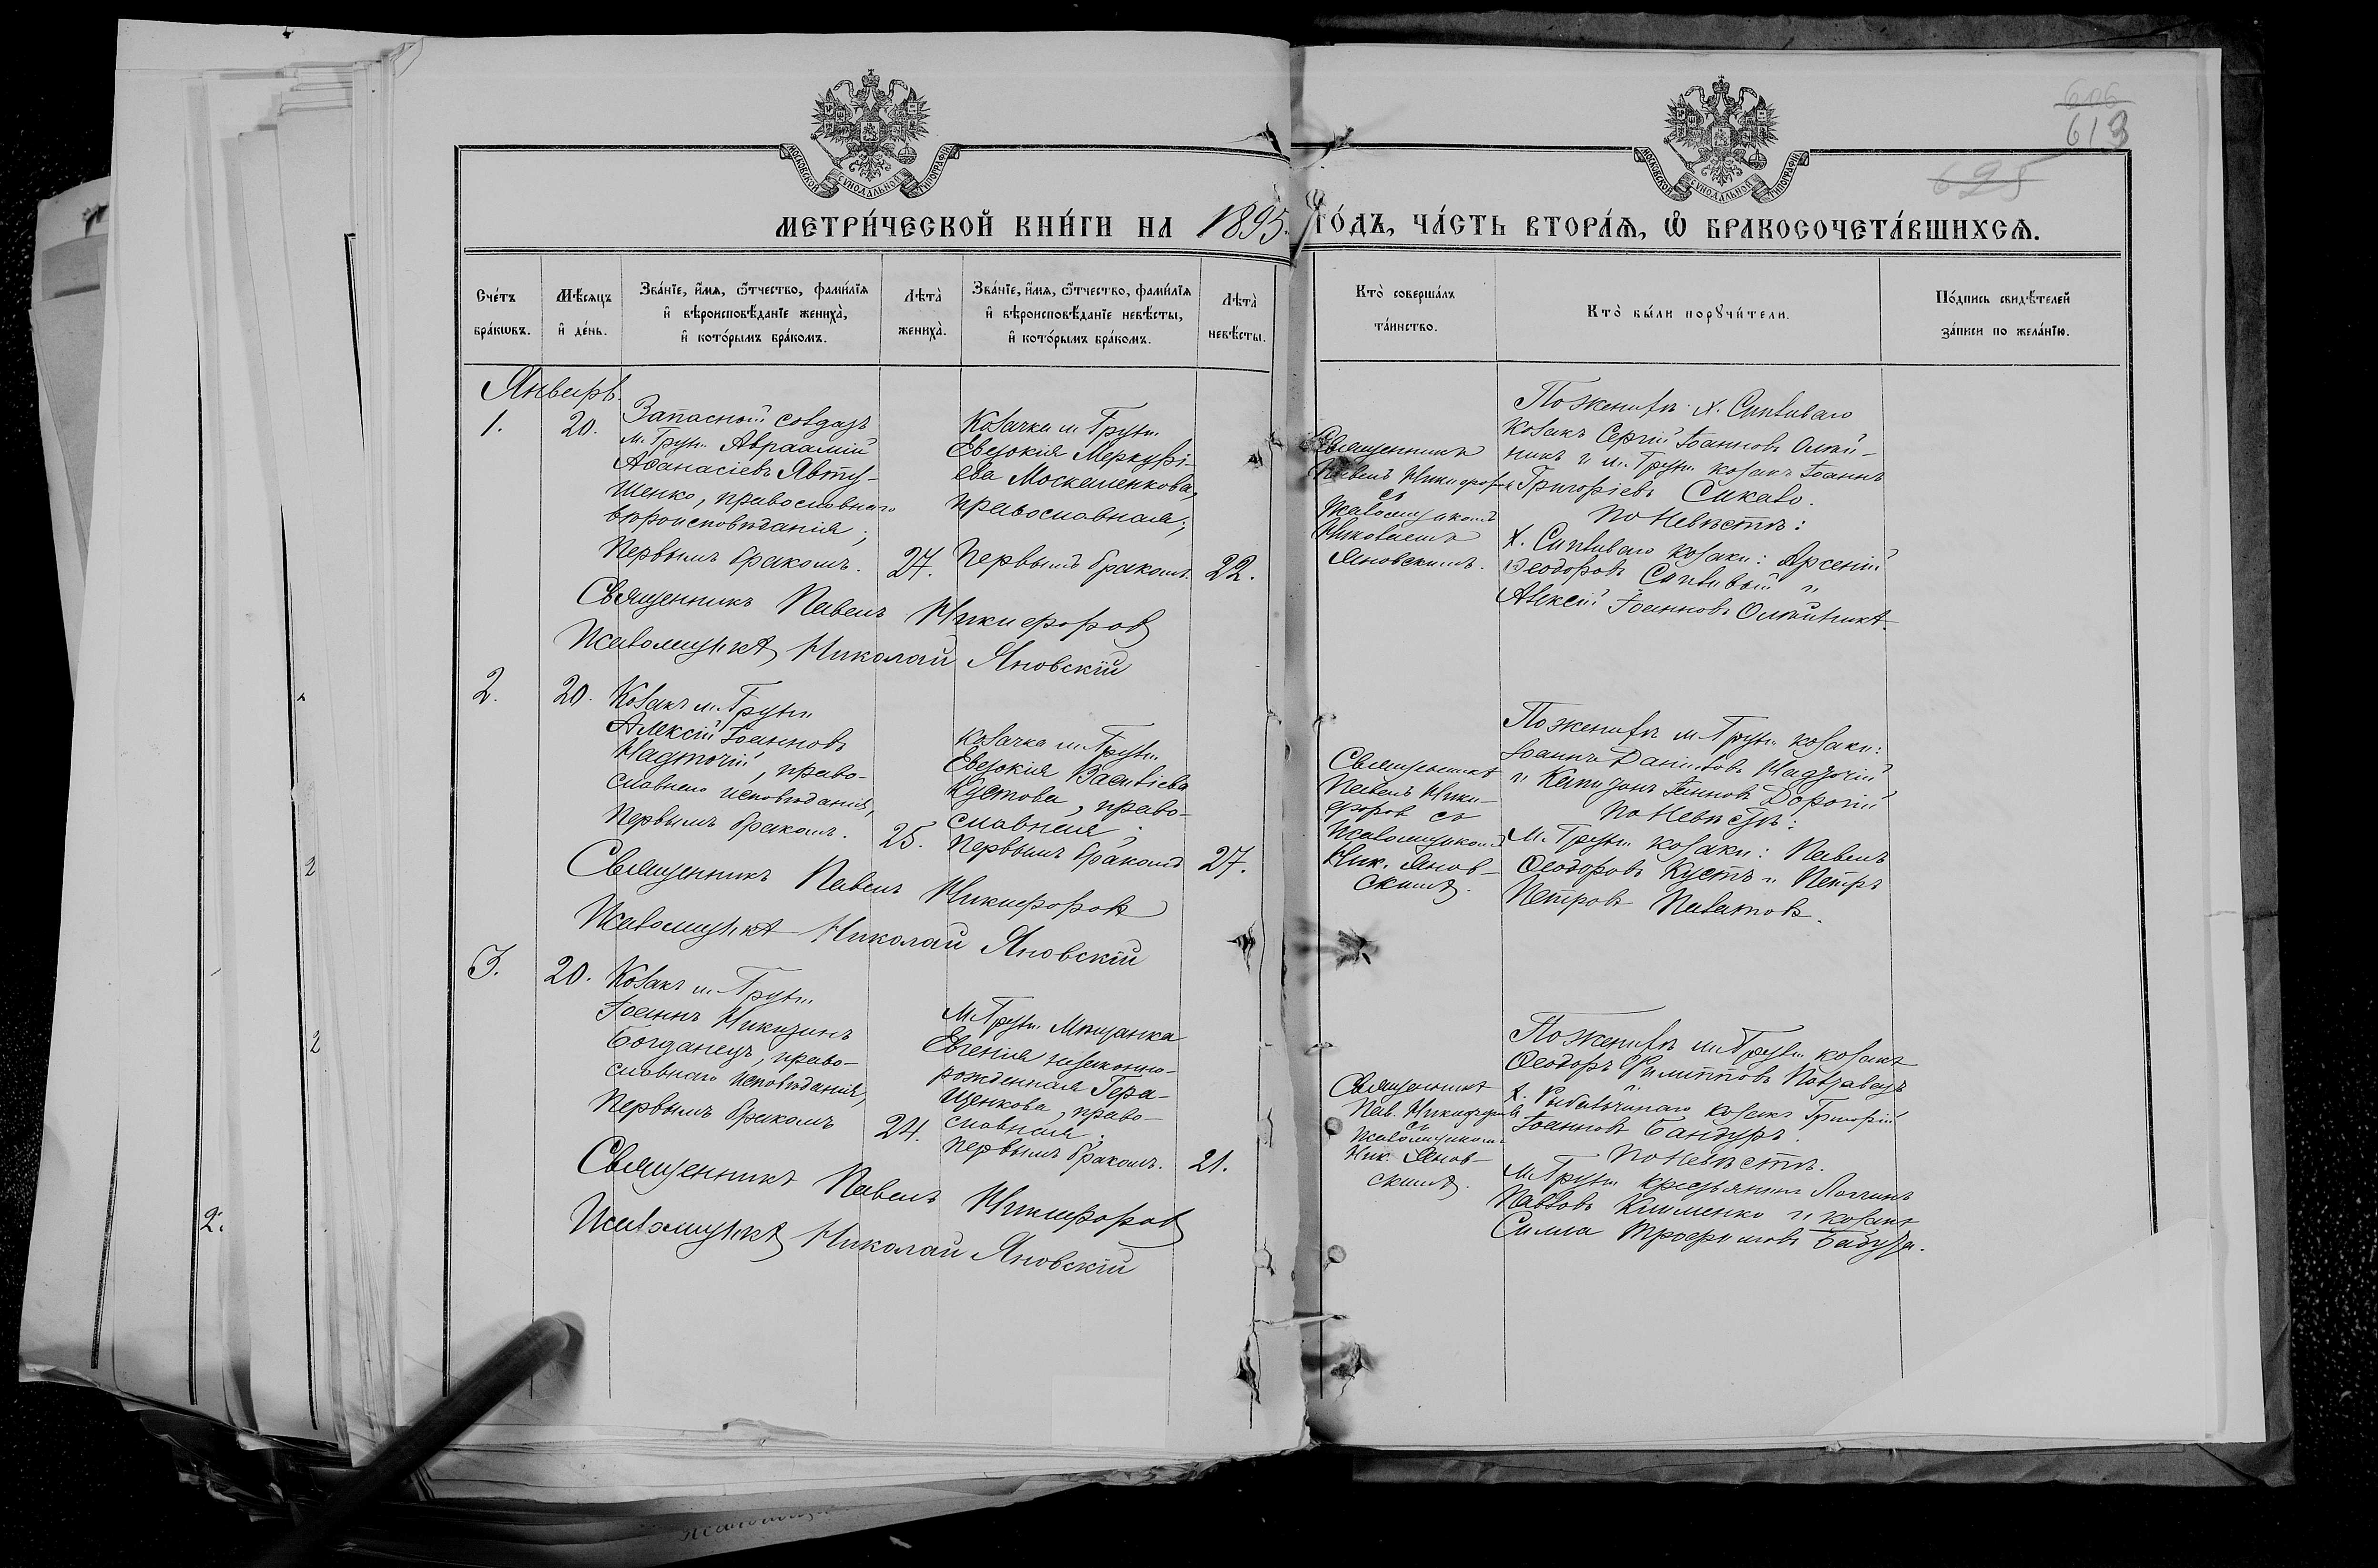 606
613
625
МОСКОВСКОЙ СУНОДАЛЬНОЙ ТИПОГРАФІИ
МОСКОВСКОЙ СУНОДАЛЬНОЙ ТИПОГРАФІИ
МЕТРИ́ЧЕСКОЙ КНИ́ГИ НА 1895. ГО́ДЪ, ЧА́СТЬ ВТОРА́Ѧ, Ѽ БРАКОСОЧЕТА́ВШИХСѦ.
Сче́тъ
бра́кѡвъ.
Мѣ́сяцъ
и҆ де́нь.
Зва́нїе, и҆́мѧ, ѻ҆́тчество, фами́лїѧ
и҆ вѣроисповѣ́данїе жениха̀,
и҆ кото́рымъ бра́комъ.
Лѣта̀
жениха̀.
Зва́нїе, и҆́мѧ, ѻ҆́тчество, фами́лїѧ
и҆ вѣроисповѣ́данїе невѣ́сты,
и҆ кото́рымъ бра́комъ.
Лѣта̀
невѣ́сты.
Кто̀ соверша́лъ
та́инство.
Кто̀ бы́ли порꙋчи́тели.
По́дпись свидѣ́телей
за́писи по жела́нїю.
Январь.
1.
20.
Запасной солдатъ
м. Груни Авраамій
Аѳанасіевъ Явту-
шенко, православнаго
вѣроисповѣданія;
первымъ бракомъ.
27.
Козачка м. Груни
Евдокія Меркурі-
ева Москаленкова,
православная;
первымъ бракомъ.
22.
Священникъ
Павелъ Никифоровъ
съ
псаломщикомъ
Николаемъ
Яновскимъ.
По женихѣ: х.
козакъ Сергій Іоанновъ Олѣй-
никъ и м. Груни козакъ Іоаннъ
Григоріевъ Сикало.
По невѣстѣ:
х. козаки: Арсеній
Ѳеодоровъ и
Алексій Іоанновъ Олѣйникъ.
Священникъ Павелъ Никифоровъ
Псаломщикъ Николай Яновскій
2.
20.
Козакъ м. Груни
Алексій Іоанновъ
Надточій, право-
славнаго исповѣданія,
первымъ бракомъ.
25.
Козачка м. Груни
Евдокія Василіева
Кустова, право-
славная;
первымъ бракомъ
27.
Священникъ
Павелъ Ники-
форовъ съ
псаломщикомъ
Ник. Янов-
скимъ.
По женихѣ м. Груни козаки:
Іоаннъ Даниловъ Надточій
и Капидонъ Іоанновъ Дорогій
По невѣстѣ:
м. Груни козаки: Павелъ
Ѳеодоровъ Кустъ и Петръ
Петровъ
Священникъ Павелъ Никифоровъ
Псаломщикъ Николай Яновскій
3.
20.
Козакъ м. Груни
Іоаннъ Никитинъ
Богданецъ, право-
славнаго исповѣданія,
первымъ бракомъ
24.
М. Груни мѣщанка
Евгенія незаконно-
рожденная Гера-
щенкова, право-
славная;
первымъ бракомъ.
21.
Священникъ
Пав. Никифоровъ
съ
псаломщикомъ
Ник. Янов-
скимъ.
По женихѣ м. Груни козакъ
Ѳеодоръ Филипповъ Полтавецъ
х. козакъ Григорій
Іоанновъ Бандуръ.
По невѣстѣ.
М. Груни крестьянинъ Логгинъ
Павловъ Клименко и козакъ
Трофимовъ
Священникъ Павелъ Никифоровъ
Псаломщикъ Николай Яновскій